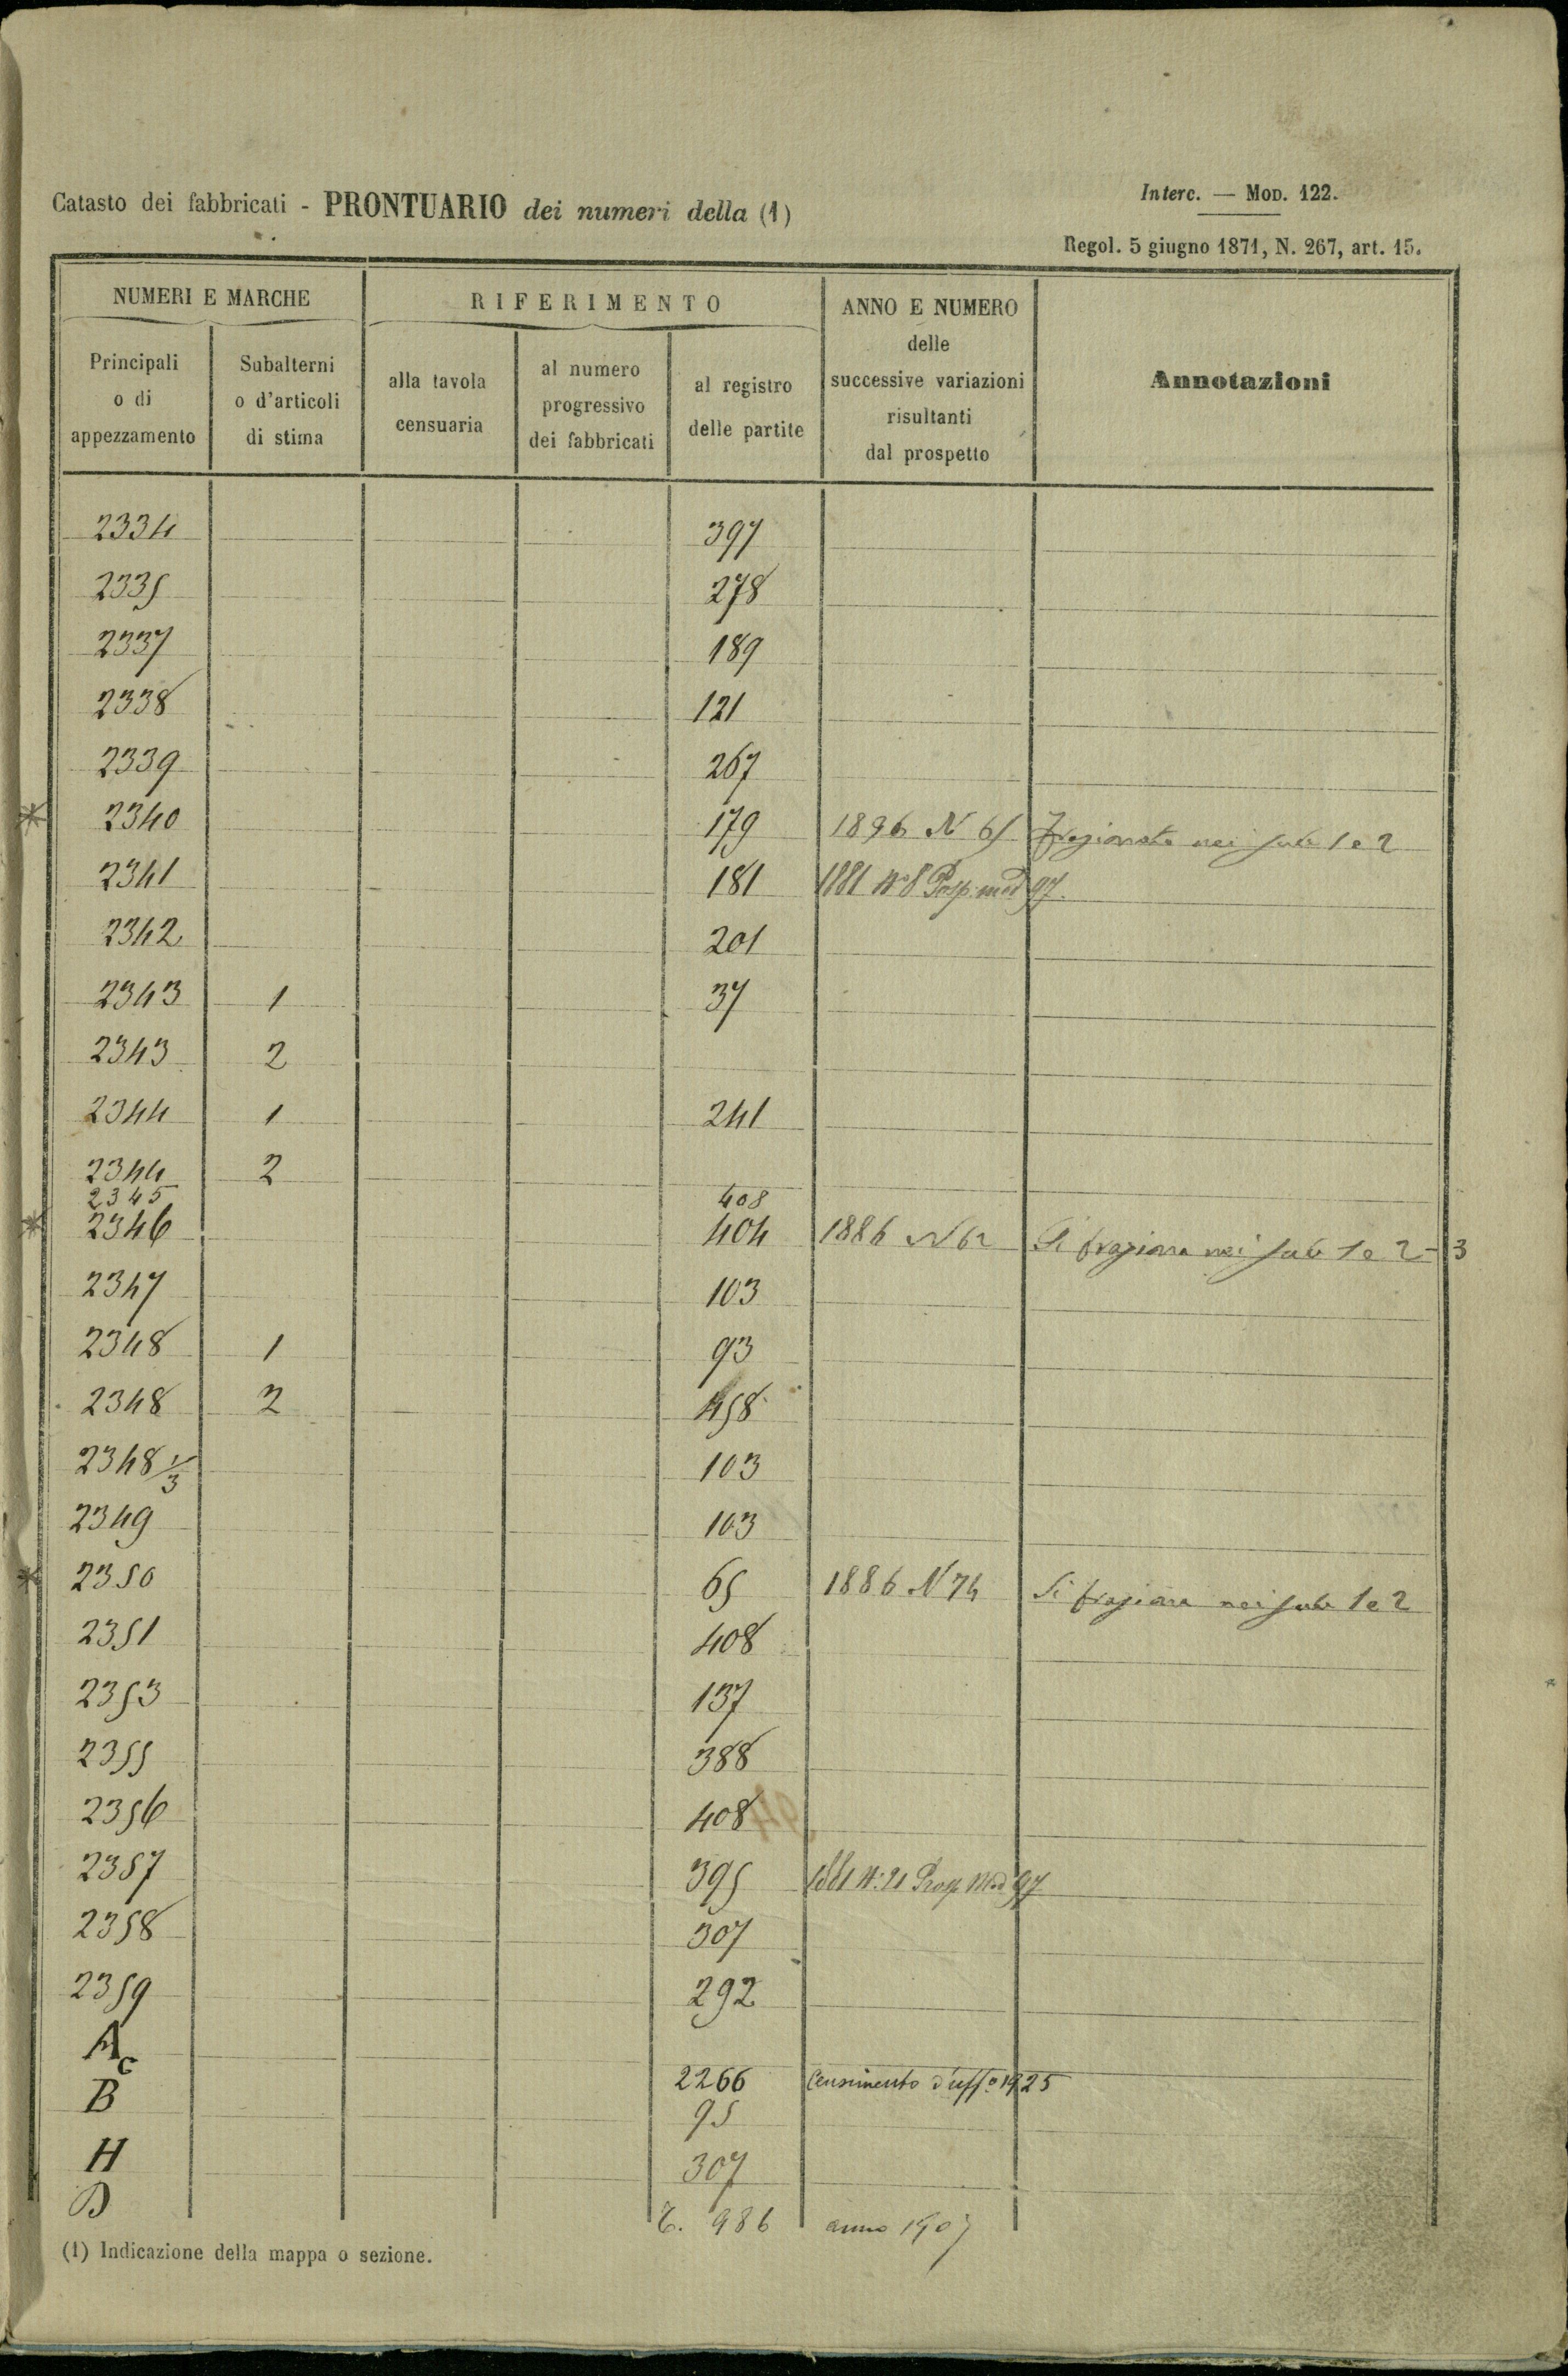 Catasto dei fabbricati - PRONTUARIO dei numeri della (1)
Interc. — Mod. 122.
Regol. 5 giugno 1871, N. 267, art. 15.
NUMERI E MARCHE
RIFERIMENTO
ANNO E NUMERO
delle
successive variazioni
risultanti
dal prospetto
Annotazioni
Principali
o di
appezzamento
Subalterni
o d'articoli
di stima
alla tavola
censuaria
al numero
progressivo
dei fabbricati
al registro
delle partite
2334 397
2335 278
2337 189
2338 121
2339 267
* 2340 179 1896 N nei sub 1 e 2
2341 181 1881 N° 8 Prosp. mod 97.
2342 201
2343 1 37
2343 2
2344 1 241
2344 2
2345 408
* 2346 404 1886 N 62 Si fraziona nei sub 1 e 2-3
2347 103
2348 1 93
2348 2 458
2348 1/3 103
2349 103
* 2350 65 1886 N 74 Si fraziona nei sub 1 e 2
2351 408
2353 137
2355 388
2356 408
2357 395 1881 N. 21 Prosp. Mod 97
2358 307
2359 292
Ac
2266 Censimento d'uff.o 1925
B 95
H 307
D 986 anno 1907
(1) Indicazione della mappa o sezione.